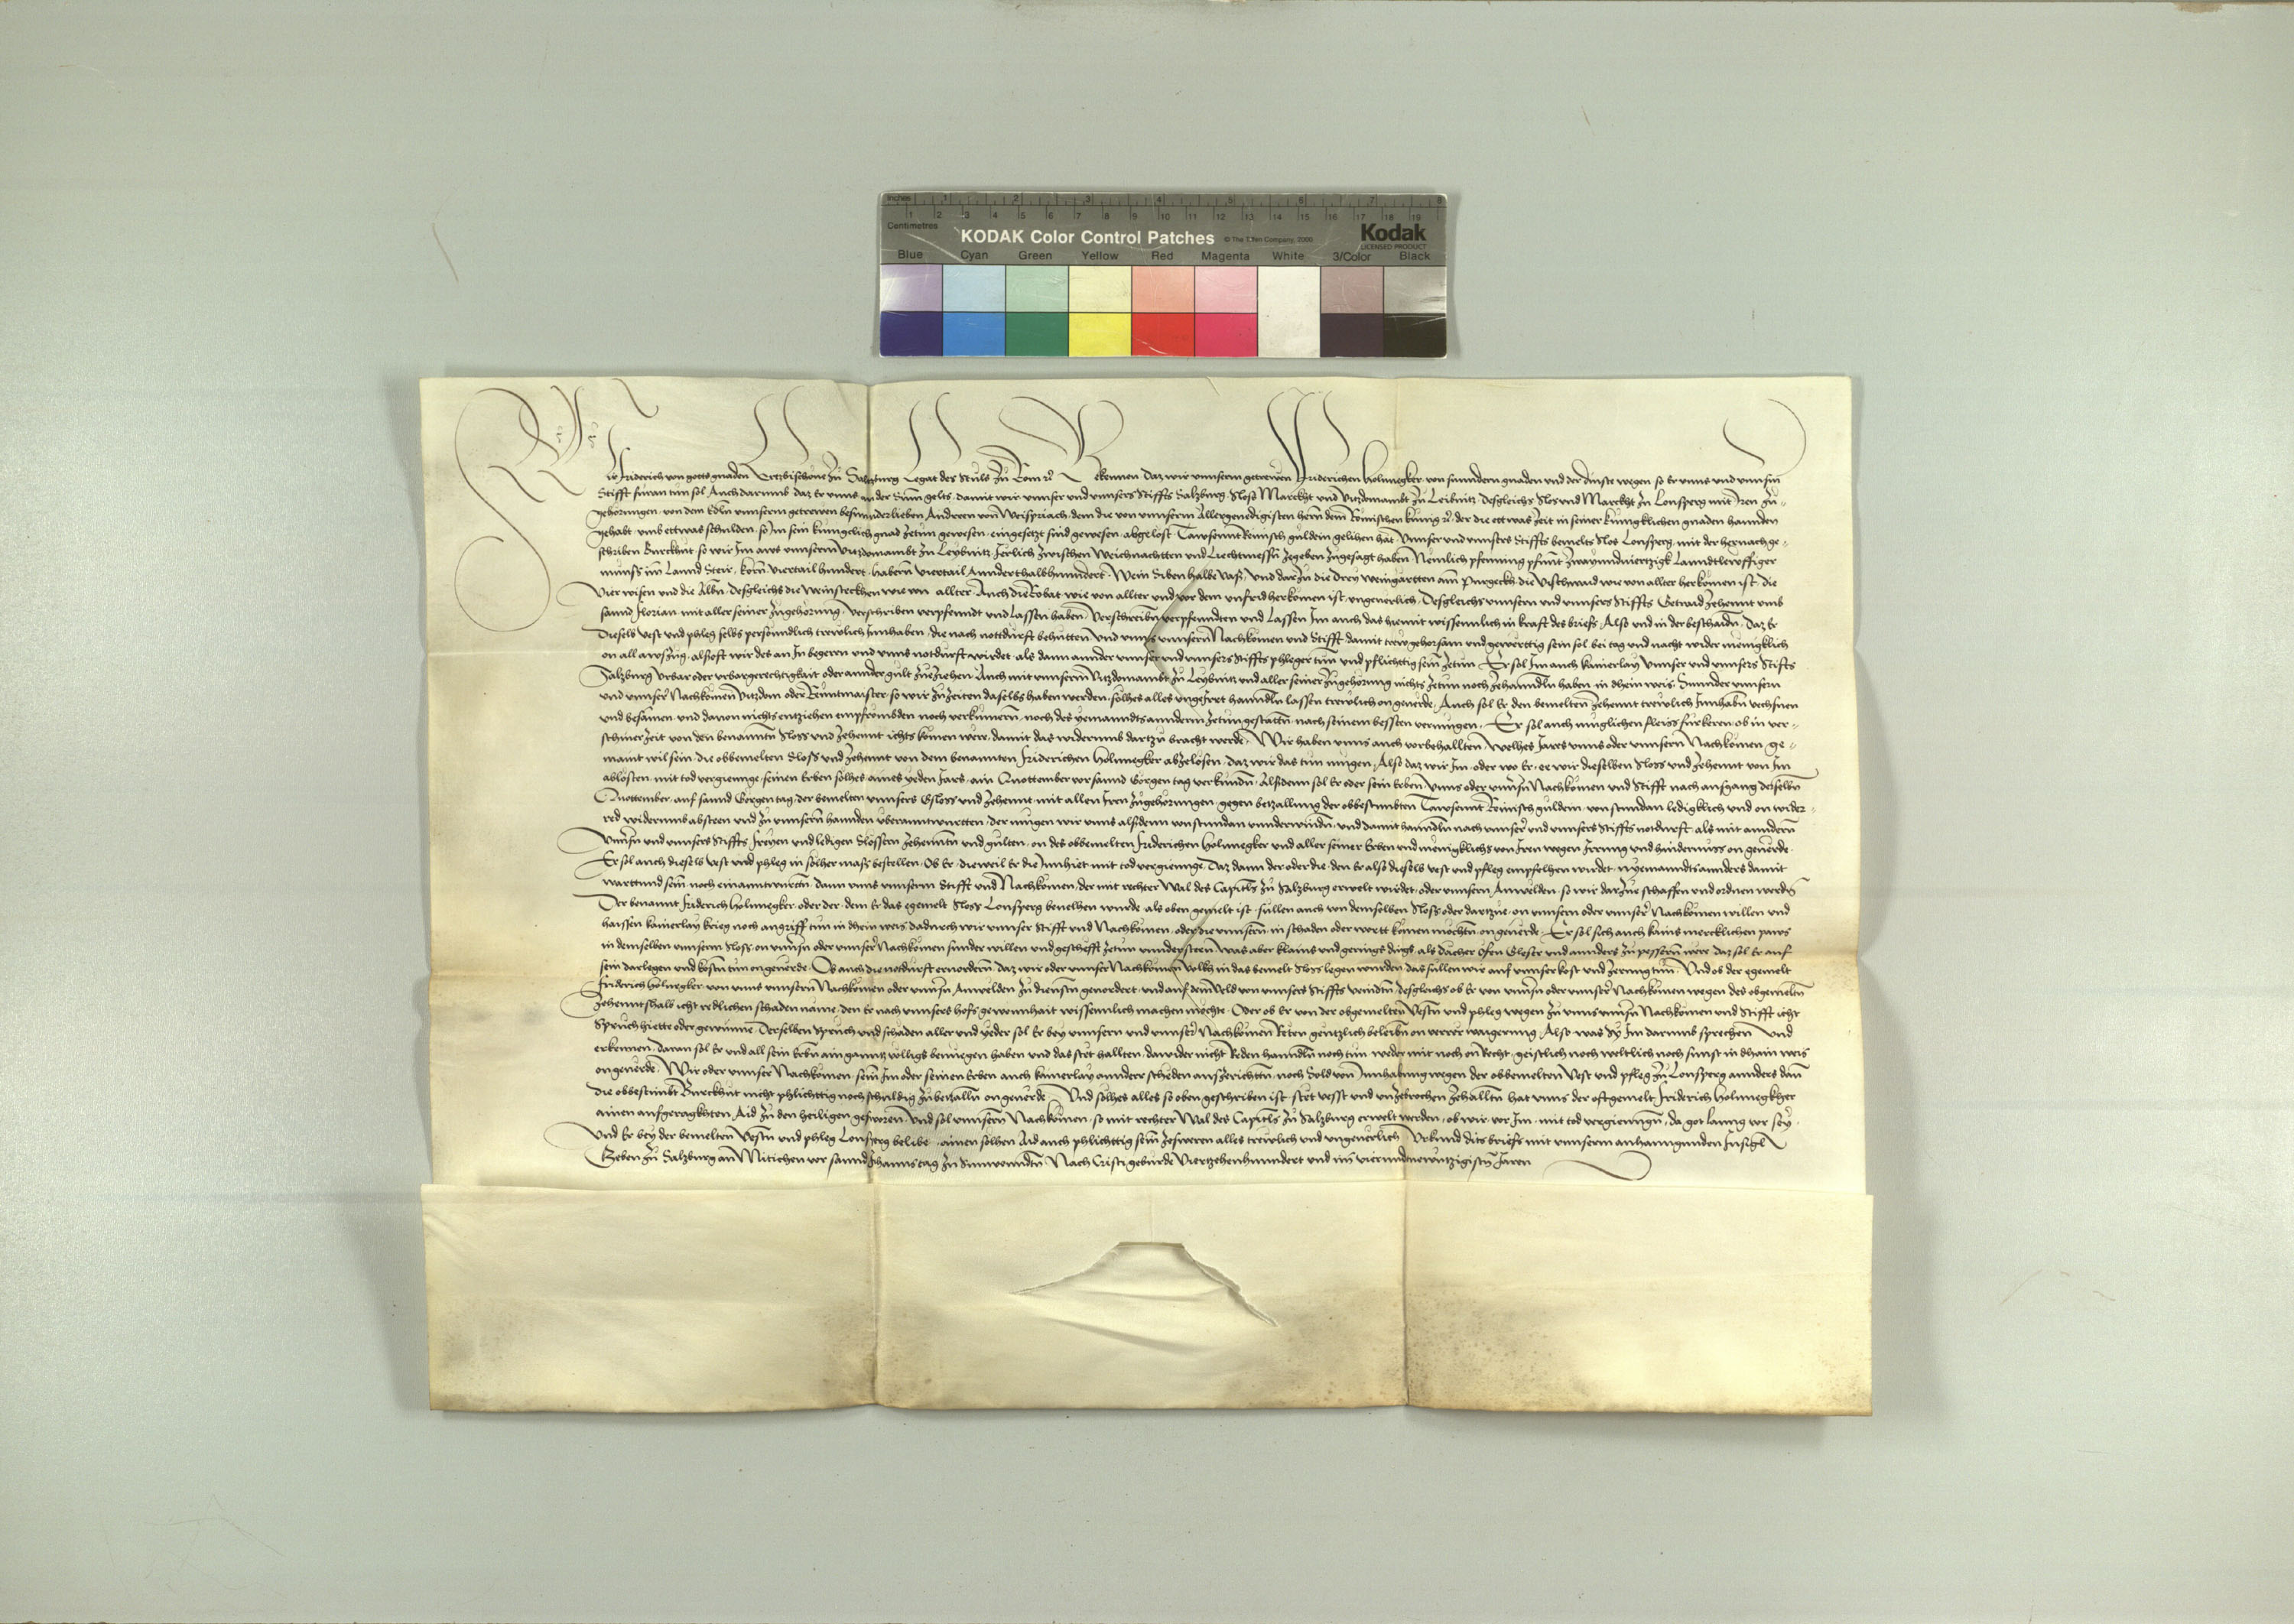 Inches 1 2 3 4 5 6 7 8
Centimetres 1 2 3 4 5 6 7 8 9 10 11 12 13 14 15 16 17 18 19
KODAK Color Control Patches © The Tiffen Company, 2000 Kodak
LICENSED PRODUCT
Blue Cyan Green Yellow Red Magenta White 3/Color Black
Wir Friderich von gotts gnaden Ertzbischoue zu Saltzburg Legat des Stuls zu Rom Bekennen daz wir vnnserm getrewen Friderichen Holnnegker von sunndern gnaden vnd der dinste wegen so Er vnns vnd vnnserm
Stifft furan tun sol Auch darumb daz Er vnns an der Summ gelts damit wir vnnser vnd vnnsers Stiffts Saltzburg Slos Marckht vnd vitzdomambt zu Leibnitz desgleichs Slos vnd Marckht zu Lonsperg mit Iren zu-
gehorungen von dem Edln vnnserm getrewen besunnderlieben Andreen von Weispriach dem die von vnnserm Allergenedigisten herrn dem Romischen kunig der die ettwas Zeit in seiner kunigklichen gnaden hannden
gehabt vmb ettwas schulden so Im sein kunigclich gnad zetun gewesen eingesetzt sind gewesen abgelost Tawsennt Reinisch guldein gelihen hat vnnser vnd vnnsers Stiffts bemelts Slos Lonsperg mit der hernachge-
schriben Burckhut so wir Im aws vnnserm vitzdomambt zu Leybnitz Jerlich zwischen Weichnachtten vnd Liechtmessn zegeben zugesagt haben Nemlich pfenning pfunt zwayundviertzigk Lanndtlewffiger
munss im Lannd Steir korn viertail hundert habern viertail Annderthalbhunndert Wein Siben halbe vass vnd darzu die drey weingartten am die vischwaid wie von allter herkomen ist die
vier wisen vnd die Albn desgleichs die weinsteckhen wie von allter Auch die Robat wie von allter vnd vor dem vnfrid herkomen ist vngeuerlich Desgleichs vnnsern vnd vnnsers Stiffts Getraid Zehennt vmb
sannd Florian mit aller seiner zugehorung verschriben verpfenndt vnd Lassen haben verschreibn verpfenndten vnd Lassen Im auch das hiemit wissenntlich in kraft des briefs Also vnd in der bescheiden daz Er
dieselb vest vnd phleg selbs personndlich trewlich Innhaben die nach notdurft behutten vnd vnns vnnsern Nachkomen vnd Stifft damit trew gehorsam vnd gewerttig sein sol bei tag vnd nacht wider menigklich
on all awszug alsofft wir des an In begern vnd vnns notdurft wirdet als dann annder vnnser vnd vnnsers Stiffts phleger tun vnd pflichttig sein zetun Er sol Im auch kainerlay vnnser vnd vnnsers Stiffts
Saltzburg vrbar oder vrbargerechtigkait oder annder gult zueziehen Auch mit vnnserm vitzdomambt zu Leybnitz vnd aller seiner zugehorung nichts zetun noch zehanndln haben in dhein weis Sunnder vnnsern
vnd vnnser Nachkomen vitzdom oder Renntmaister so wir zu zeiten daselbs haben werden solhes alles vngeirrt hanndln lassen trewlich on geuerde Auch sol Er den bemelten Zehennt trewlich Innhabn vechsnen
vnd besamen vnd dauon nichts entziehen empfrombden noch verkumern noch des yemanndts anndern zetun gestattn nach seinem bessten vermugen Er sol auch muglichen fleiss furkern ob in ver-
schiner zeit von den benanntn Sloss vnd Zehennt ichts komen wer damit das widerumb dartzu bracht werde Wir haben vnns auch vorbehallten welhes Jars vnns oder vnnsern Nachkomen ge-
maint wil sein die obbemelten Sloss vnd Zehennt von dem benannten Friderichen Holnnegker abzelosen daz wir das tun mugen Also daz wir Im oder wo Er ee wir dieselben Sloss vnd Zehennt von Im
ablosten mit tod vergiennge seinen Erben solhes aines yeden Jars ain Quottember vor sannd Gorgen tag verkundn Alsdenn sol Er oder sein Erben vnns oder vnnsern Nachkomen vnd Stifft nach ausgang desselbn
Quottember auf sannd Gorgen tag der bemelten vnnsers Gsloss vnd Zehennt mit allen Iren zugehorungen gegen betzallung der obbestimbten Tawsennt Reinisch guldein von stundan ledigklich vnd on wider-
red widerumb abtreten vnd zu vnnsern hannden vberanntwurtten der mugen wir vnns alsdenn von stundan vnnderwindn vnd damit hanndln nach vnnser vnd vnnsers Stiffts notdurft als mit anndern
vnnsern vnd vnnsers Stiffts freyen vnd ledigen Slossern Zehenntn vnd gulten on des obbemelten Friderichen Holnnegker vnd aller seiner Erben vnd menigklichs von Iren wegen Irrung vnd hindernuss on geuerde
Er sol auch dieselb vest vnd phleg in solher mass bestellen Ob Er dieweil Er die Innhiet mit tod vergiennge daz dann der oder die den Er also dieselb vest vnd pfleg empfelhen wirdet nyemanndts annders damit
warttund sein noch einanntwurttn dann vnns vnnserm Stifft vnd Nachkomen der mit rechter wal des Capitls zu Saltzburg erwelt wirdet oder vnnsern Anwelden so wir darzue schaffen vnd ordnen werden
Der benannt Friderich Holnnegker oder der dem Er das egemelt Sloss Lonsperg beuelhen wurde als oben gemelt ist sullen auch von demselben Sloss oder dartzue on vnnsern oder vnnser Nachkomen willen vnd
haissen kainerlay krieg noch angriff tun in dhein weis dadurch wir vnnser Stifft vnd Nachkomen oder die vnnsern in schaden oder wertt komen mochtn on geuerde Er sol sich auch kains mercklichen paws
in demselben vnnserm Sloss on vnnsern oder vnnser Nachkomen sunder willen vnd gescheft zetun vnndersteen Was aber klains vnd gerings dings als Dacher Ofen Gleser vnd annders zu pessern wer daz sol Er auf
sein darlegen vnd kostn tun on geuerde Ob auch die notdurft eruordern daz wir oder vnnser Nachkomen volkh in das bemelt Sloss legen wurden das sullen wir auf vnnser kost vnd zerung tun Vnd ob der egemelt
Friderich Holnegker von vnns vnnsern Nachkomen oder vnnsern Anwelden zu dienstn geuordert vnd auf dem veld von vnnsers Stiffts veindtn desgleichs ob Er von vnnsern oder vnnser Nachkomen wegen des obgemeltn
Zehenntshalb icht redlichen schaden name den Er nach vnnsers hofs gewonnhait wissenntlich machen mochte Oder ob Er von der obgemelten Vestn vnd phleg wegen zu vnns vnnsern Nachkomen vnd Stifft icht
Spruch hiette oder gewunne Derselben spruch vnd schaden aller vnd yeder sol Er bey vnnsern vnd vnnser Nachkomen Reten genntzlich beleibn on verrer waigerung Also was Sy Im darumb sprechen vnd
erkennen daran sol Er vnd all sein Erbn ain ganntz volligs benuegen haben vnd das stet hallten dawider nicht Reden hanndln noch tun weder mit noch on Recht geistlich noch weltlich noch sunst in dhain weis
on geuerde Wir oder vnnser Nachkomen sein Im oder seinen Erben auch kainerlay annder scheden auszerichttn noch Sold von Innhabung wegen der obbemelten Vest vnd pfleg zu Lonsperg annders dann
die obbestimbt Burckhut nicht phlichttig noch schuldig zu betzalln on geuerde Vnd solhes alles so oben geschriben ist stet vesst vnd vnzebrochen zehalltn hat vnns der oftgemelt Friderich Holnnegkher
ainen aufgeragkhten Aid zu den heiligen gesworen Vnd sol vnnsern Nachkomen so mit rechter Wal des Capitls zu Saltzburg erwelt werden ob wir vor Im mit tod vergienngn da got lanng vor sey
Vnd Er bey der bemelten Vestn vnd phleg Lonsperg belibe ainen solhen Aid auch phlichttig sein zesweren alles trewlich vnd vngeuerlich Vrkund dits briefs mit vnnserm anhanngunden Insigl
Geben zu Saltzburg an Mittichen vor sannd Johannstag zu Sunnwenndtn Nach Cristi geburde Viertzehenhunndert vnd im viervndnewntzigistn Jaren